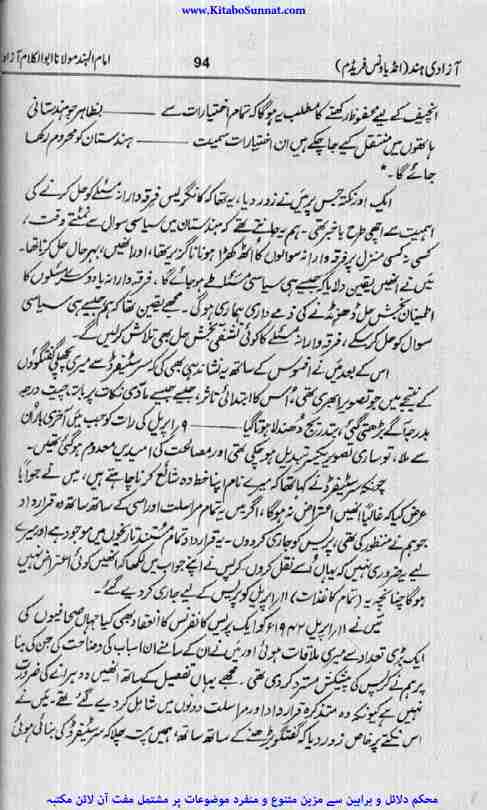 www.KitaboSunnat.com
آزادی ہند (انڈیا ونس فریڈم) 94 امام الہند مولانا ابوالکلام آزاد
انچیف کے لیے محفوظ رکھنے کا مطلب یہ ہوگا کہ تمام اختیارات سے ــــــ بظاہر جو ہندستانی
ہاتھوں میں منتقل کیے جا چکے ہیں ان اختیارات سمیت ــــــ ہندستان کو محروم رکھا
جائے گا۔"
ایک اور نکتہ جس پر میں نے زور دیا، یہ تھا کہ کانگریس فرقہ دارانہ مسئلے کو حل کرنے کی
اہمیت سے اچھی طرح باخبر تھی۔ ہم یہ جانتے تھے کہ ہندستان میں سیاسی سوال سے نمٹتے وقت،
کسی نہ کسی منزل پر فرقہ دارانہ سوالوں کا اٹھ کھڑا ہونا ناگزیر تھا، اور انھیں بہرحال حل کرنا تھا۔
میں نے انھیں یقین دلایا کہ جیسے ہی سیاسی مسئلہ طے ہو جائے گا۔ فرقہ دارانہ یا دوسرے مسئلوں کا
اطمینان بخش حل ڈھونڈنے کی ذمے داری ہماری ہوگی۔ مجھے یقین تھا کہ ہم جیسے ہی سیاسی
سوال کو حل کر سکے، فرقہ دارانہ مسئلے کا کوئی تشفی بخش حل بھی تلاش کرلیں گے۔
اس کے بعد میں نے افسوس کے ساتھ یہ نشاندہی بھی کی کہ سر سٹیفرڈ سے میری پچھلی گفتگوؤں
کے نتیجے میں جو تصویر ابھری تھی، اُس کا ابتدائی تاثر، جیسے جیسے مادّی نکات پر بات چیت درجہ
بدرجہ آگے بڑھتی گئی، بتدریج دُھندلا ہوتا گیا ــــــ ۹ر اپریل کی رات کو جب میں آخری بار اُن
سے ملا، تو ساری تصویر یکسر تبدیل ہو چکی تھی اور مصالحت کی امیدیں معدوم ہوگئی تھیں۔
چونکہ سر سٹیفرڈ نے کہا تھا کہ میرے نام اپنا خط وہ شائع کرنا چاہتے ہیں، میں نے جواباً
عرض کیا کہ غالباً انھیں اعتراض نہ ہوگا، اگر میں یہ تمام مراسلت اور اسی کے ساتھ ساتھ وہ قرارداد
جو ہم نے منظور کی تھی، پریس کو جاری کر دوں۔ یہ قرارداد تمام مستند تاریخوں میں موجود ہے اور میرے
لیے یہ ضروری نہیں کہ یہاں اُسے نقل کروں۔ کرپس نے اپنے جواب میں لکھا کہ انھیں کوئی اعتراض نہیں
ہوگا چنانچہ یہ (تمام کاغذات) ۱۱ر اپریل کو پریس کے لیے جاری کر دیے گئے۔
میں نے ۱۱ر اپریل ۱۹۴۲ء کو ایک پریس کانفرنس کا انعقاد بھی کیا جہاں صحافیوں کی
ایک بڑی تعداد سے میری ملاقات ہوئی اور میں نے ان کے سامنے ان اسباب کی وضاحت کی جن کی بنا
پر ہم نے کرپس کی پیشکش مسترد کر دی تھی۔ مجھے یہاں تفصیل کے ساتھ انھیں دوہرانے کی ضرورت
نہیں ہے کیونکہ وہ متذکرہ قرارداد اور مراسلت دونوں میں شامل کر دیے گئے تھے۔ میں نے
اس نکتے پر خاص زور دیا کہ گفتگو بڑھنے کے ساتھ ساتھ، ہمیں پتہ چلا کہ سر سٹیفرڈ کی بنائی ہوئی
محکم دلائل و براہین سے مزین متنوع و منفرد موضوعات پر مشتمل مفت آن لائن مکتبہ